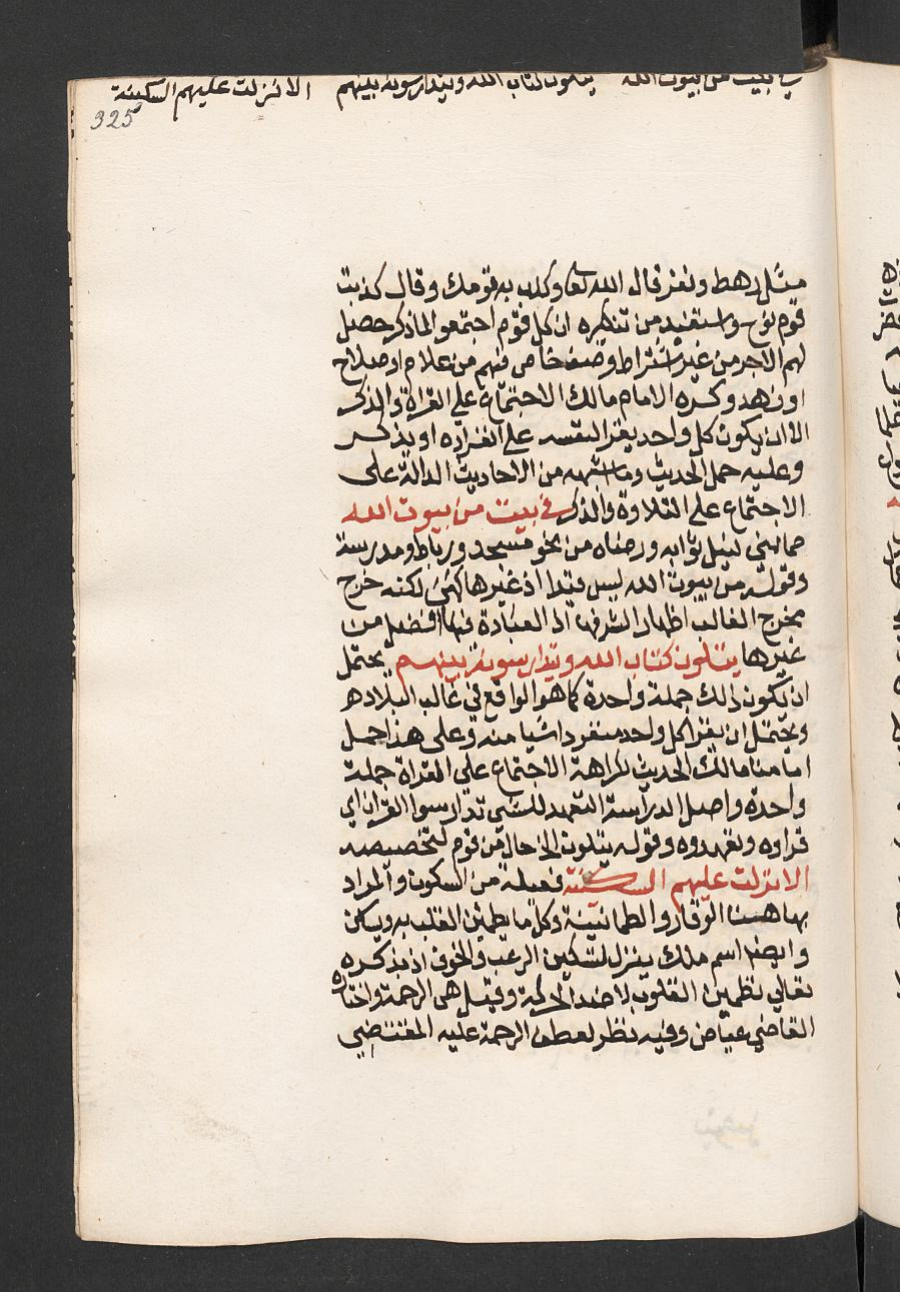 في بيت من بيوت الله يتلون كتاب الله ويتدارسونه بينهم الا نزلت عليهم السكينة
325
مثل رهط ونفر قال الله تعا وكذب به قومك وقال كذبت
قوم نوح واستفيد من تنكيره ان كل قوم اجتمعوا لماذكر حصل
لهم الاجر من غير اشتراط وصف خاص فيهم من علام او صلاح
او زهد وكره الامام مالك الاجتماع على القراة والذكر
الا ان يكون كل واحد يقرا لنفسه على انفراده او يذكر
وعليه حمل الحديث وما اشبهه من الاحاديث الدالة على
الاجتماع على التلاوة والذكر في بيت من بيوت الله
مما بني لنيل ثوابه ورضاه من نحو مسجد ورباط ومدرسة
وقوله من بيوت الله ليس قيدا اذ غيرها كهي لكنه خرج
مخرج الغالب اظهارا لشرفها اذ العبادة فيها افضل من
غيرها يتلون كتاب الله ويتدارسونه بينهم يحتمل
ان يكون ذالك جملة واحدة كما هو الواقع في غالب البلاد
ويحتمل ان يقرا كل واحد منفردا شيا منه وعلى هذا حمل
امامنا مالك الحديث لكراهة الاجتماع على القراة جملة
واحدة واصل الدراسة التعهد للشي تدارسوا القران اي
قراوه وتعهدوه وقوله يتلون الخ حال من قوم لتخصيصه
الا نزلت عليهم السكينة فعيلة من السكون والمراد
بها هنا الوقار والطمانينة وكل ما يطمئن القلب به ويسكن
وايضا اسم ملك ينزل لتسكين الرعب والخوف اذ بذكره
تعالى تطمين القلوب لا ضد الحركة وقيل هي الرحمة واختاره
القاضي عياض وفيه نظر لعطف الرحمة عليه المقتضي